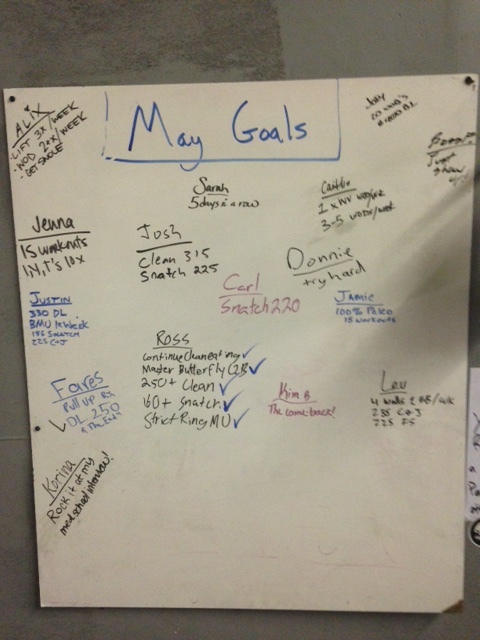 May Goals
ALIX
-LIFT 3X/WEEK
-WOD 2xX/WEEK
-GET SWOLE
Sarah
5 days in a row
Caitlin
3-5 WODs/week
Just
show
Jenna
15 workouts
Josh
Clean 315
Snatch 225
Donnie
try hard
Carl
Snatch 220
JUSTIN
330 DL
BMU 1x Week
185 SNATCH
225 C+J
Jamie
100% Paleo
15 workouts
Ross
Continue Clean eating ✓
Master Butterfly C2B ✓
250+ Clean ✓
160+ Snatch ✓
Strict Ring MU ✓
Fares
Pull up
✓ DL 250
Kim B
The comeback!
Lou
235 C+J
225 FS
Korina
Rock it at my
med school interview!